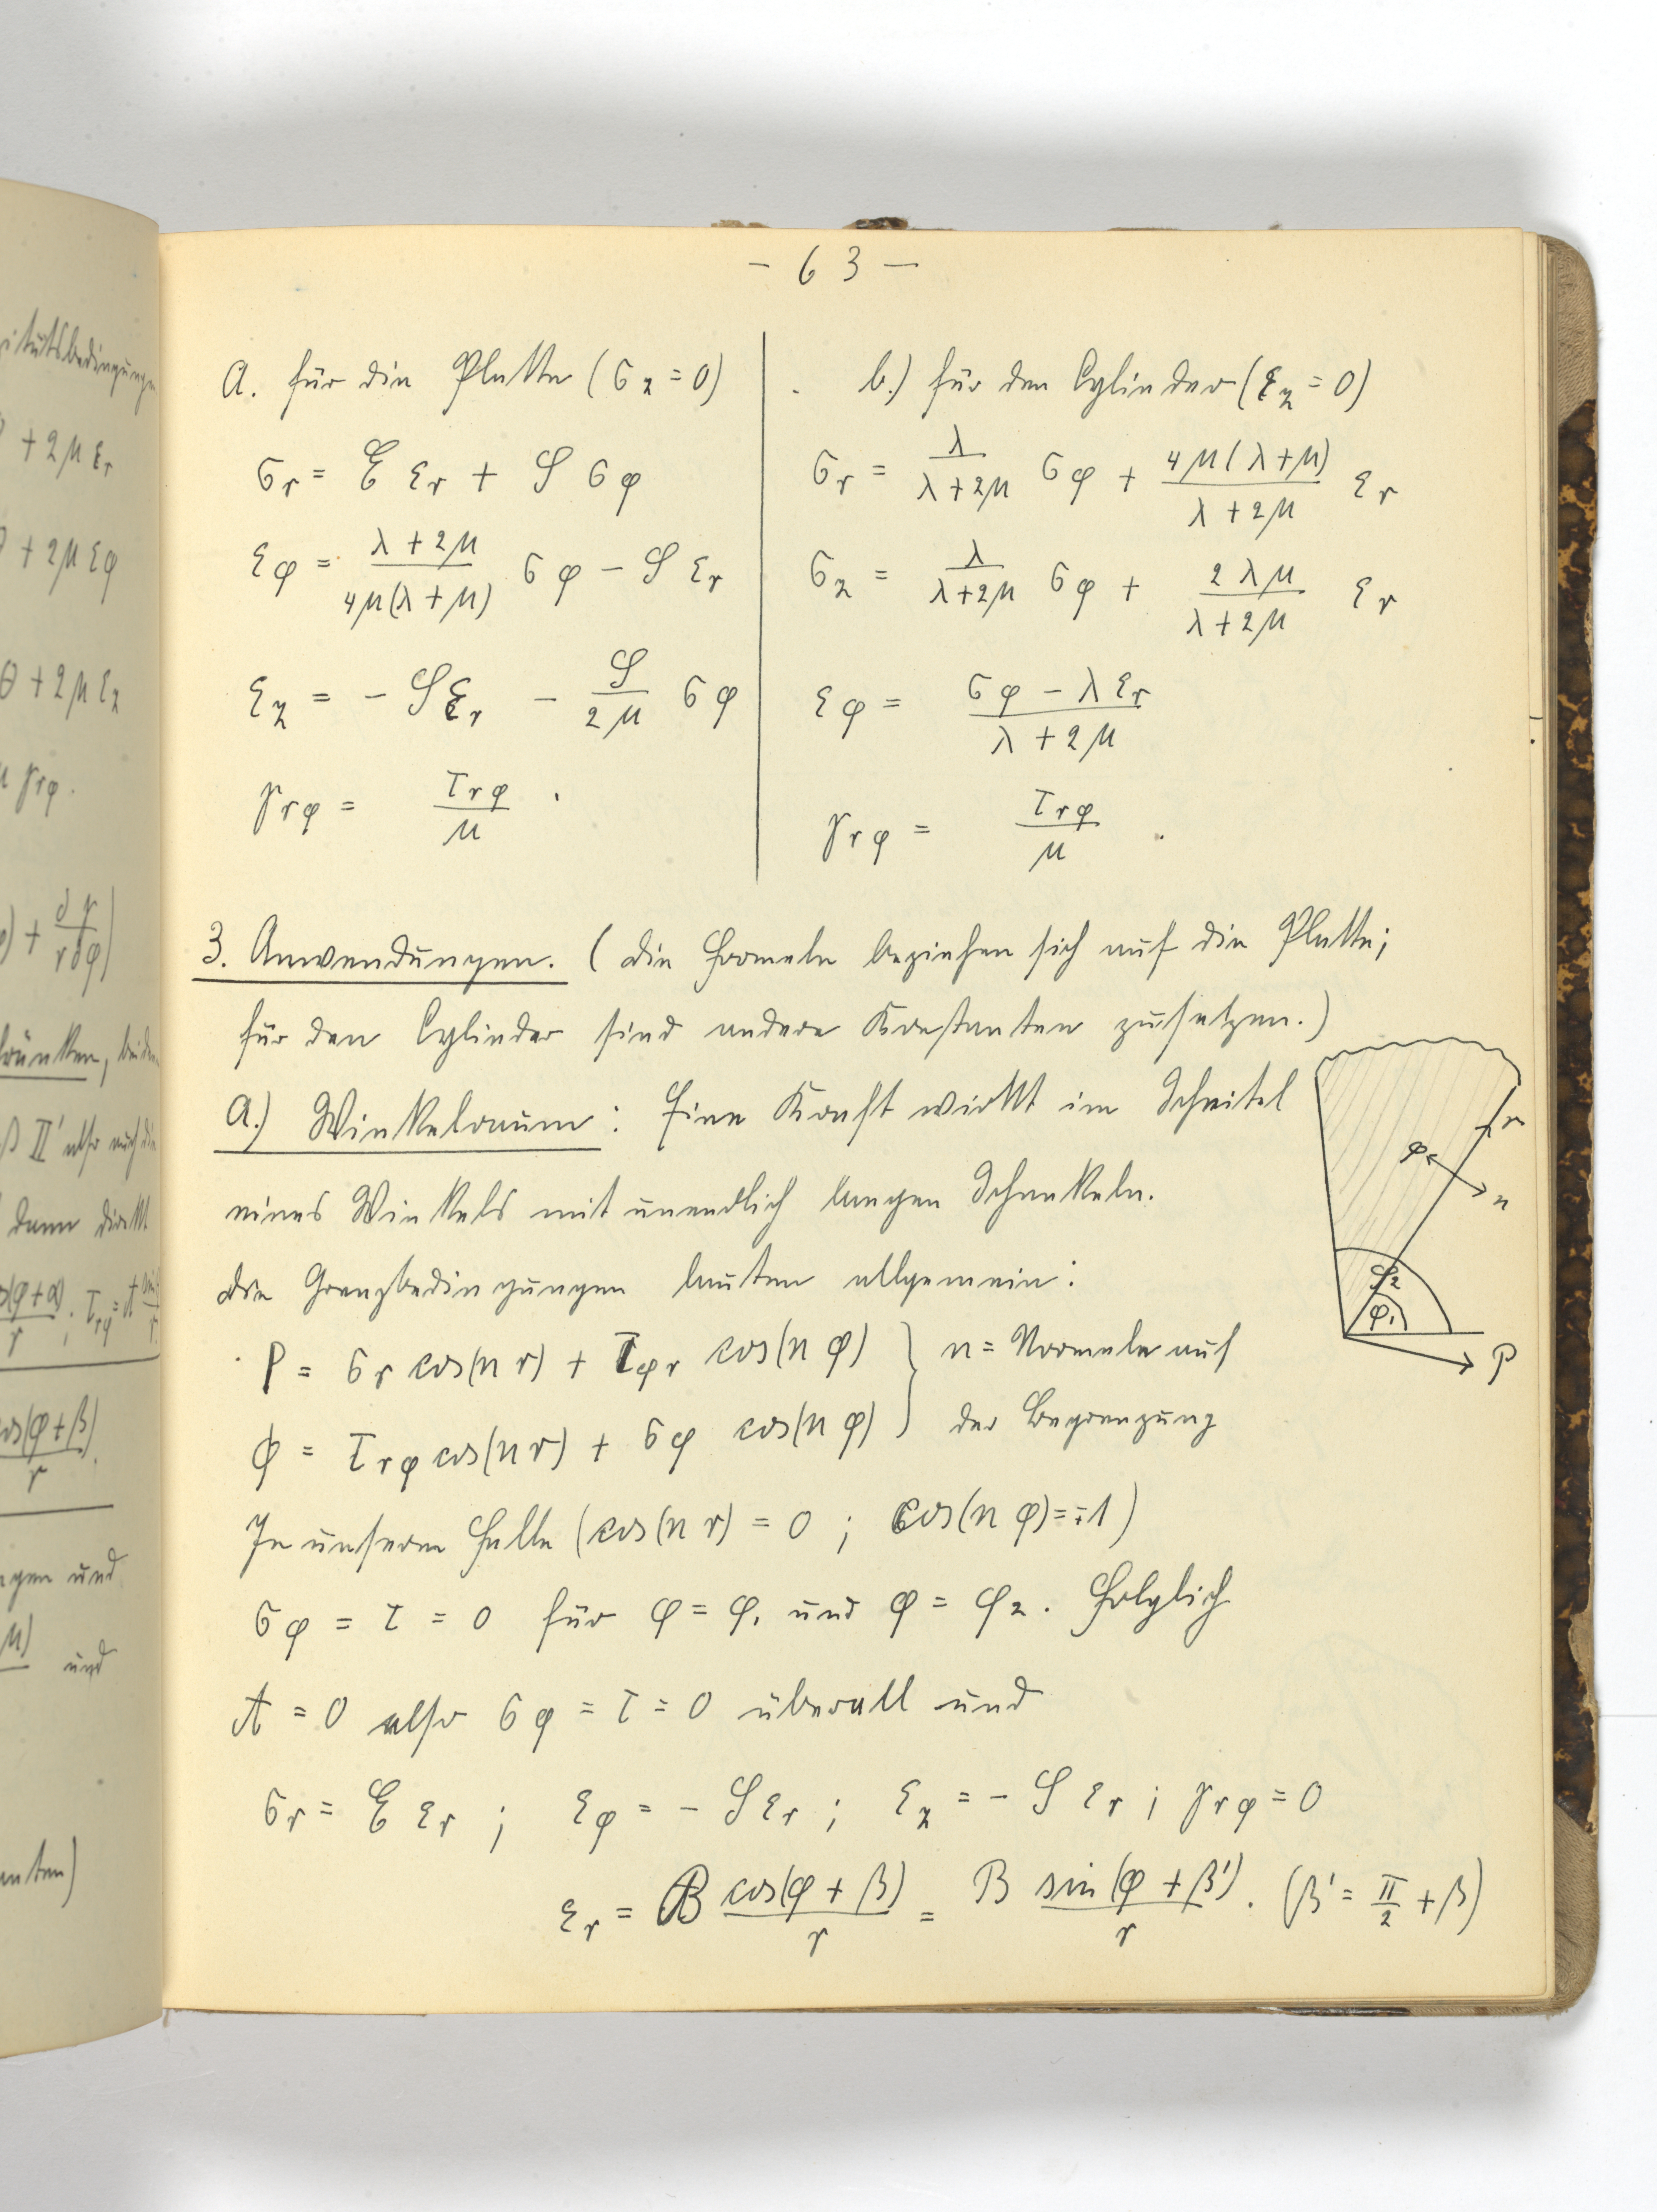 itätsbedingunge
+ 2μ εr
+ 2μ εφ
θ + 2μ εz
γrφ.
) + ∂γ/r∂φ)
und
und
- 63 -
a. für die Platte (σz = 0)
σr = E εr + S σφ
εφ = (λ + 2μ)/(4μ(λ + μ)) σφ - S εr
εz = - S εr - S/2μ σφ
γrφ = τrφ/μ .
b.) für den Cylinder (εz = 0)
σr = λ/(λ + 2μ) σφ + 4μ(λ + μ)/(λ + 2μ) εr
σz = λ/(λ + 2μ) σφ + 2λμ/(λ + 2μ) εr
εφ = (σφ - λ εr)/(λ + 2μ)
γrφ = τrφ/μ .
3. Anwendungen. (Die Formeln beziehen sich auf die Platte;
für den Cylinder sind andere Konstanten zu setzen.)
a.) Winkelraum: Eine Kraft wirkt im Scheitel
eines Winkels mit unendlich langen Schenkeln.
Die Grenzbedingungen lauten allgemein:
P = σr cos(n r) + τφr cos(n φ) } n = Normale auf
Φ = τrφ cos(n r) + σφ cos(n φ) } der Begrenzung
In unserm Falle (cos(n r) = 0 ; cos(n φ) = ±1)
σφ = τ = 0 für φ = φ1 und φ = φ2. Folglich
A = 0 also σφ = τ = 0 überall und
σr = E εr ; εφ = - S εr ; εz = - S εr ; γrφ = 0
εr = B cos(φ + β)/r = B sin(φ + β')/r . (β' = π/2 + β)
r
φ
n
φ2
φ1
P